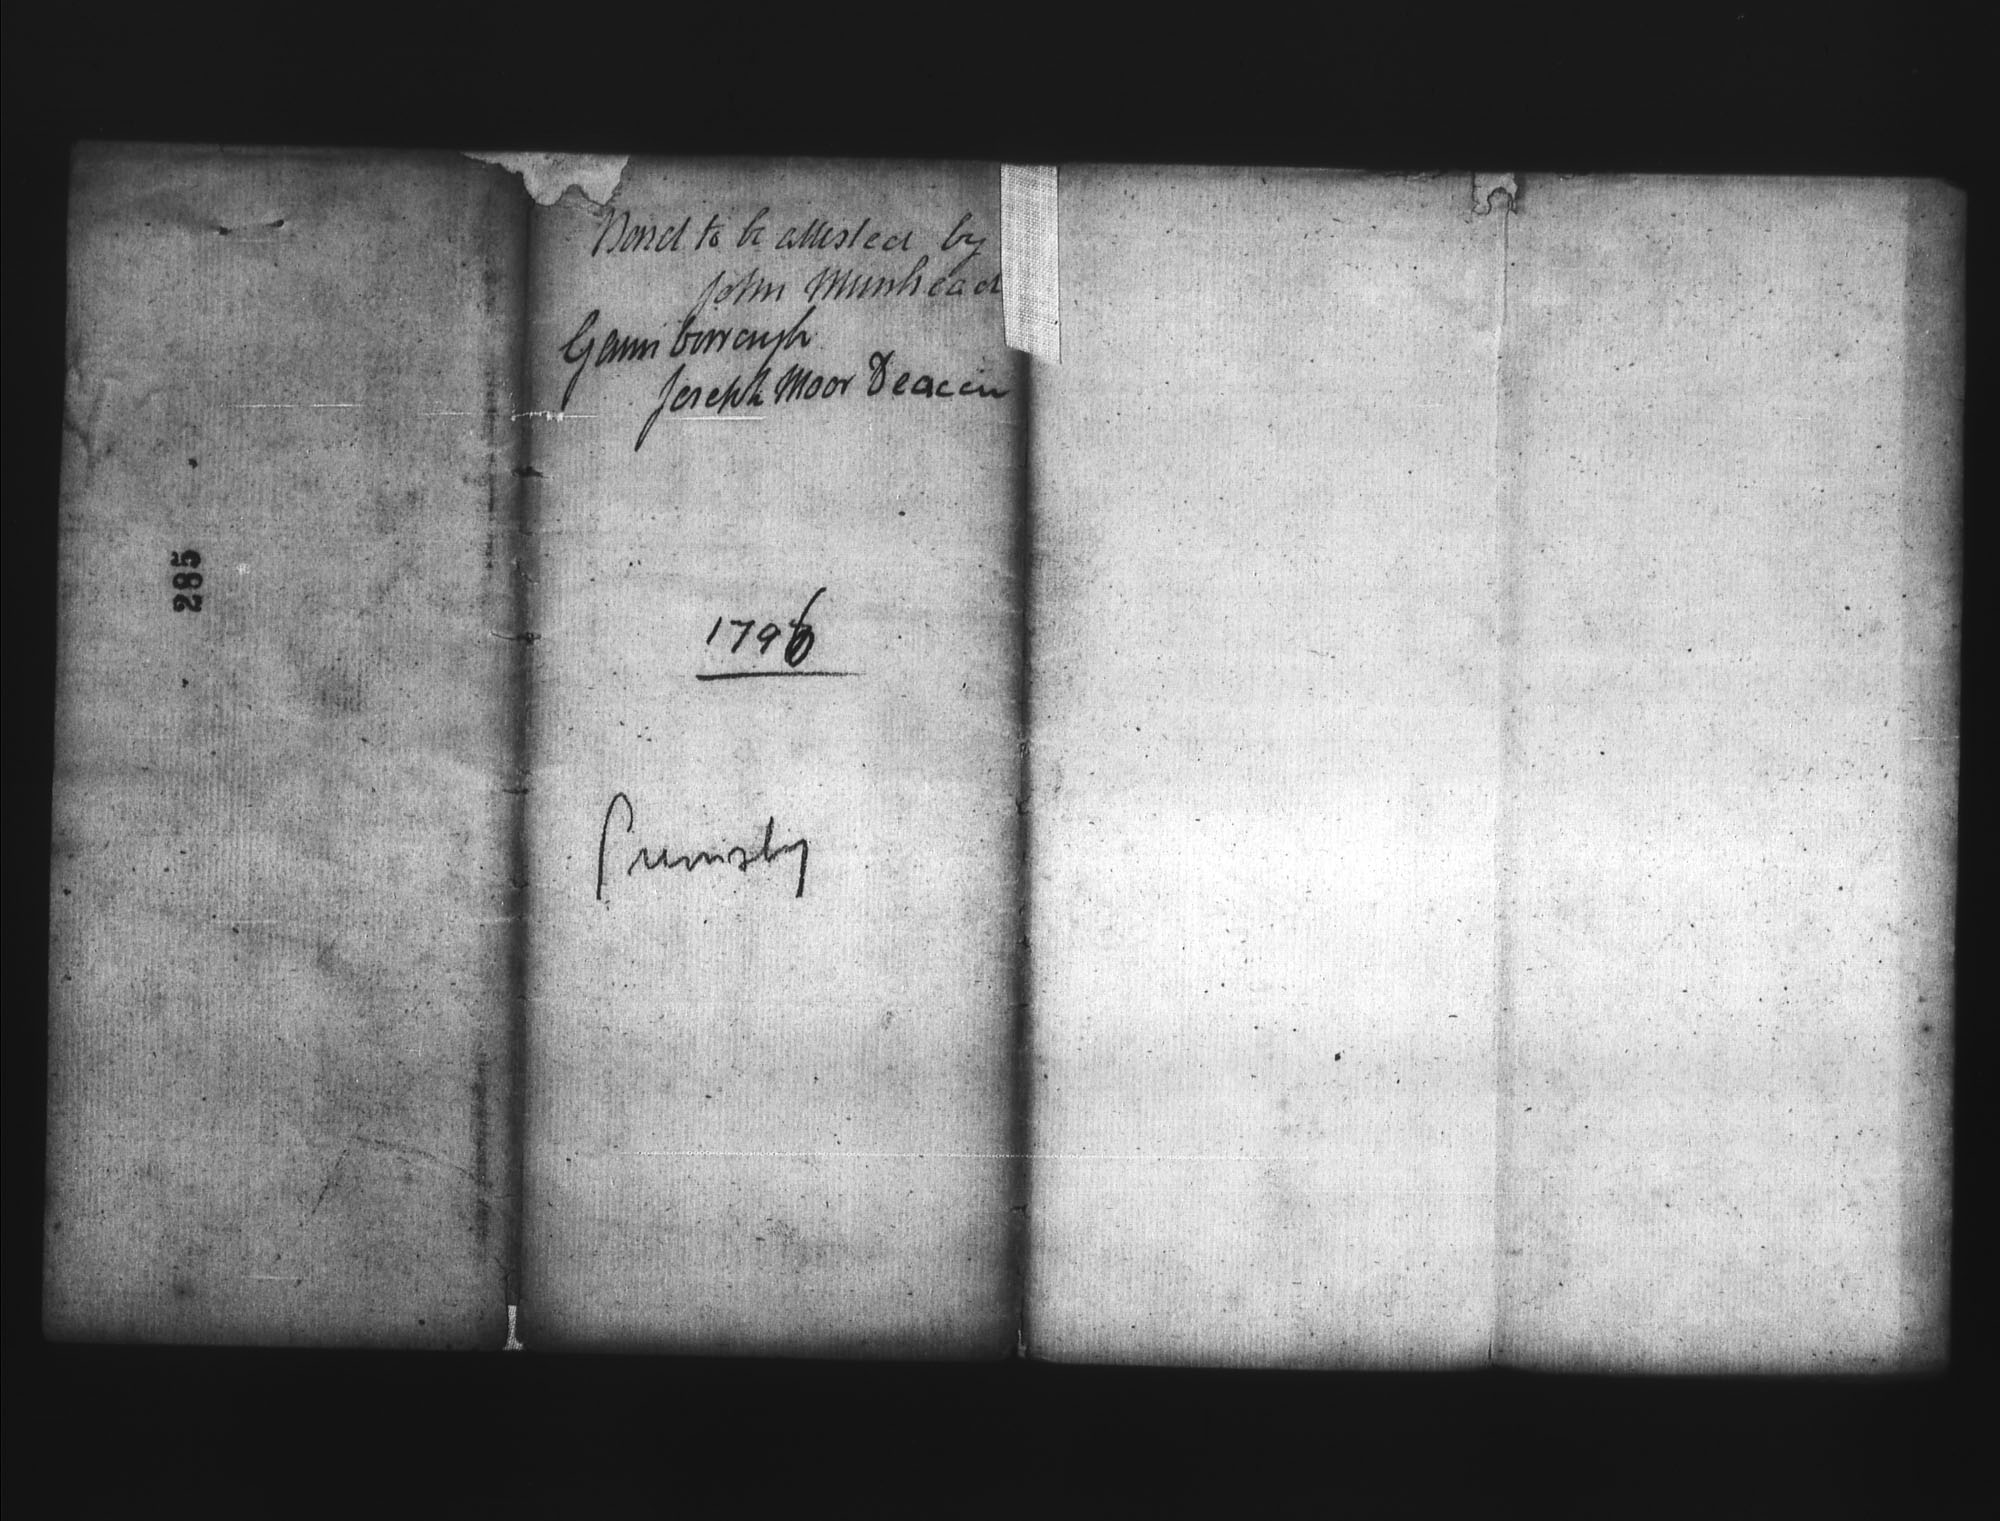 285
Bond to be attested by
John Muirhead
Gainsborough
Joseph Moor Deacon
1796